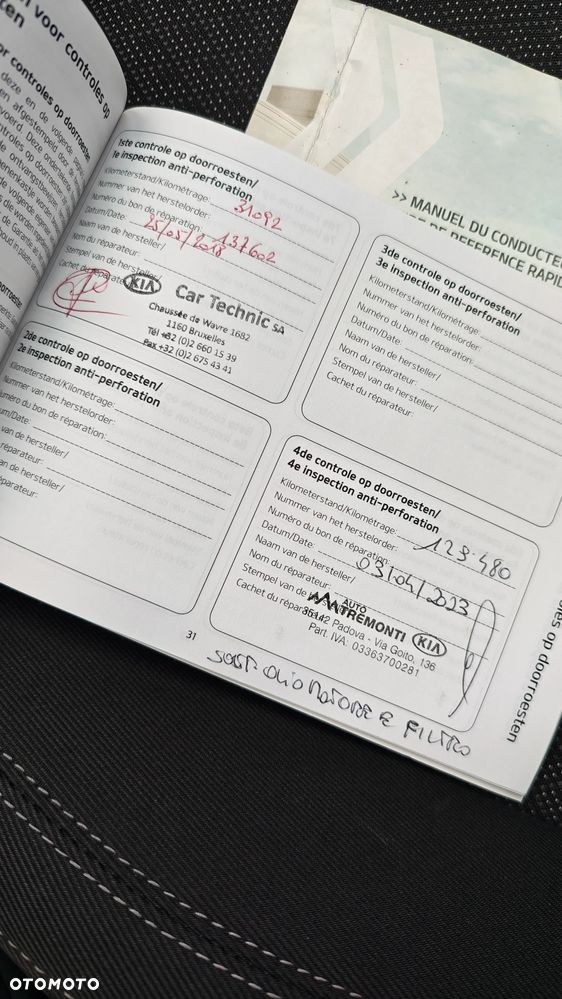 voor controles op
or controles op doorroesten
deze en de volgende
afgestempeld door de
MANUEL DU CONDUCTE
DE REFERENCE RAPID
1ste controle op doorroesten/
1e inspection anti-perforation
Kilometerstand/Kilométrage: 31092
Nummer van het herstelorder:
Numéro du bon de réparation: 137602
Datum/Date: 25/05/2018
Naam van de hersteller/
Nom du réparateur:
Stempel van de hersteller/
Cachet du réparateur:
KIA Car Technic SA
Chaussée de Wavre 1682
1160 Bruxelles
Tél +32 (0)2 660 15 39
Fax +32 (0)2 675 43 41
2de controle op doorroesten/
2e inspection anti-perforation
Kilometerstand/Kilométrage:
Nummer van het herstelorder:
uméro du bon de réparation:
um/Date:
van de hersteller/
réparateur:
van de hersteller/
éparateur:
31
3de controle op doorroesten/
3e inspection anti-perforation
Kilometerstand/Kilométrage:
Nummer van het herstelorder:
Numéro du bon de réparation:
Datum/Date:
Naam van de hersteller/
Nom du réparateur:
Stempel van de hersteller/
Cachet du réparateur:
4de controle op doorroesten/
4e inspection anti-perforation
Kilometerstand/Kilométrage: 123.480
Nummer van het herstelorder:
Numéro du bon de réparation:
Datum/Date: 03/04/2023
Naam van de hersteller/
Nom du réparateur:
Stempel van de hersteller/
Cachet du réparateur:
AUTO
TREMONTI KIA
35142 Padova - Via Goito, 136
Part. IVA: 03363700281
SOST OLIO MOTORE E FILTRO
oles op doorroesten
OTOMOTO